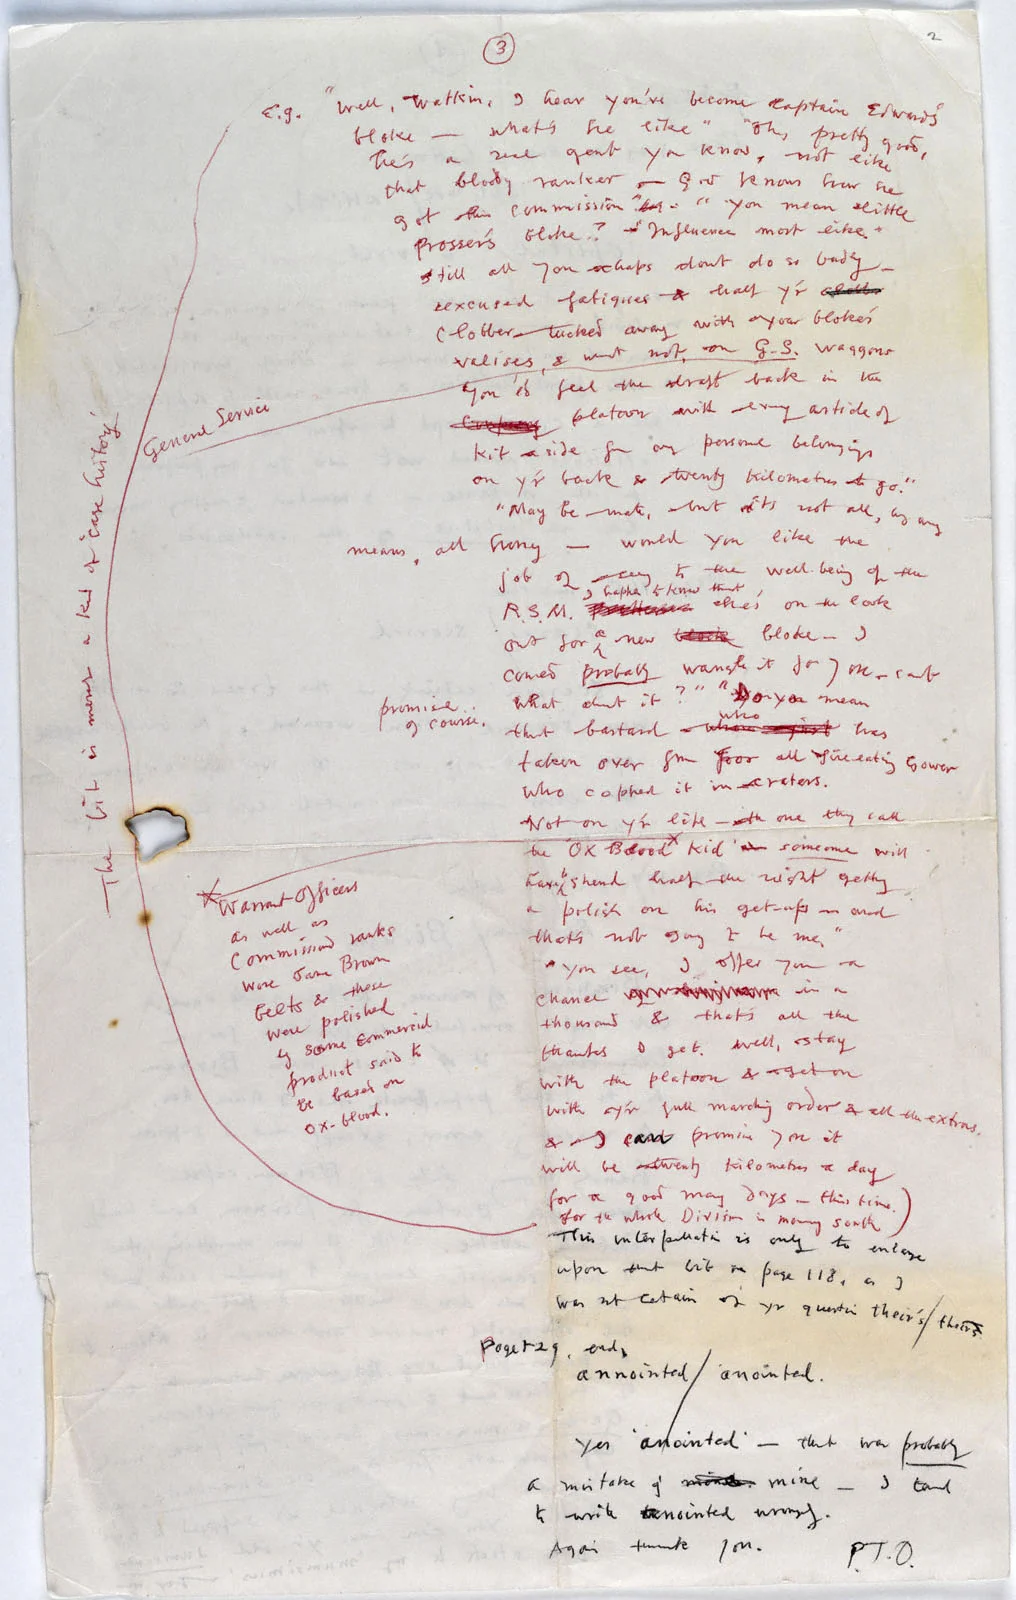 3
2
E.g. "Well, Watkin, I hear you've become Captain Edwards'
bloke — what's he like" "Oh, pretty good,
he's a real gent you know, not like
that bloody ranker — God knows how he
got his commission". "You mean little
Prosser's bloke? – Influence most like"
still all you chaps dont do so badly –
excused fatigues & half y'r
clobber tucked away with your bloke's
valises, & what not, on G.S. waggons
General Service
You'd feel the draft back in the
Company platoon with every article of
kit aside fr. any personal belongings
on y'r back & twenty kilometres to go."
"May be mate, but it's not all, by any
means, all honey — would you like the
job of seeing to the well-being of the
I happen to know that
R.S.M. he's on the look
out for a new bloke – I
could probably wangle it for you – cant
promise
of course.
what about it?" "Do you mean
that bastard who has
taken over from poor old fire-eating Gower
who copped it in craters.
Not on y'r life – the one they call
the 'Ox Blood x Kid' – someone will
have to spend half the night getting
a polish on his get-ups – and
that's not going to be me."
"You see, I offer you a
chance in a
thousand & that's all the
thanks I get. Well, stay
with the platoon & get on
with y'r full marching order & all the extras,
& I can promise you it
will be twenty kilometres a day
for a good many days – this time.)
for the whole Division is moving south
x Warrant Officers
as well as
Commissioned ranks
wore Sam Brown
belts & these
were polished
by some commercial
product said to
be based on
ox-blood.
— The bit is merely a kind of 'case history'
This interpolation is only to enlarge
upon that bit on page 118, as I
was not certain of yr question their's/theirs
Page 129, end,
annointed/anointed.
Yes 'anointed' — that was probably
a mistake of mine — I tend
to write anointed wrongly.
Again thank you.
P.T.O.